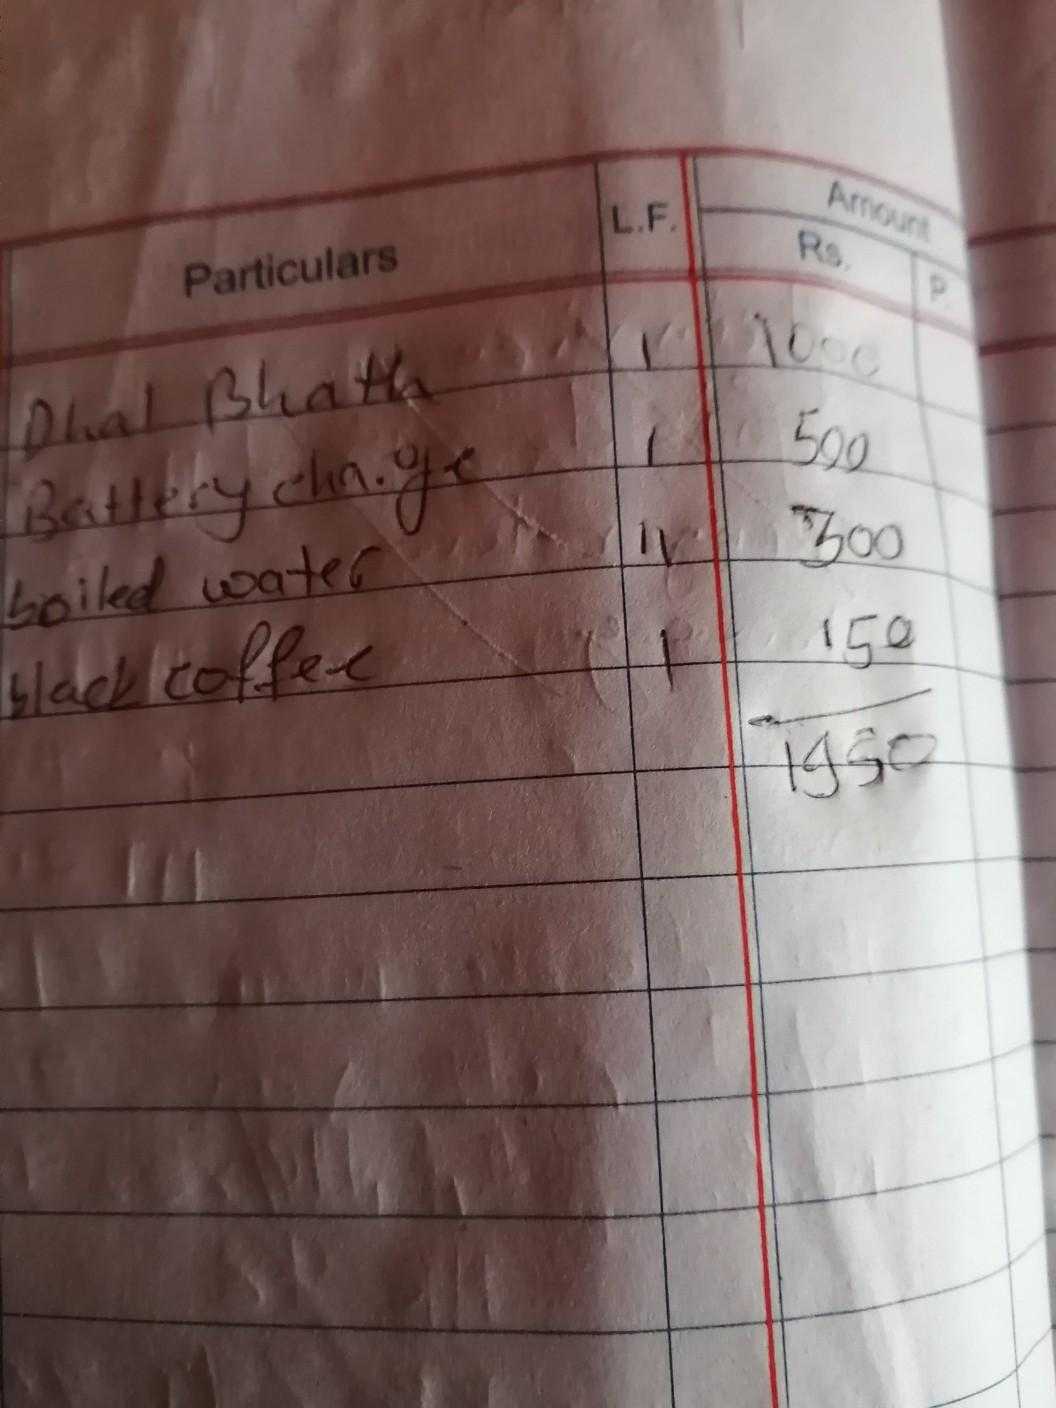 Particulars L.F. Amount
Rs. P.
Dhal Bhath 1 1000
Battery charge 1 500
boiled water 11 300
black coffee 1 150
1950